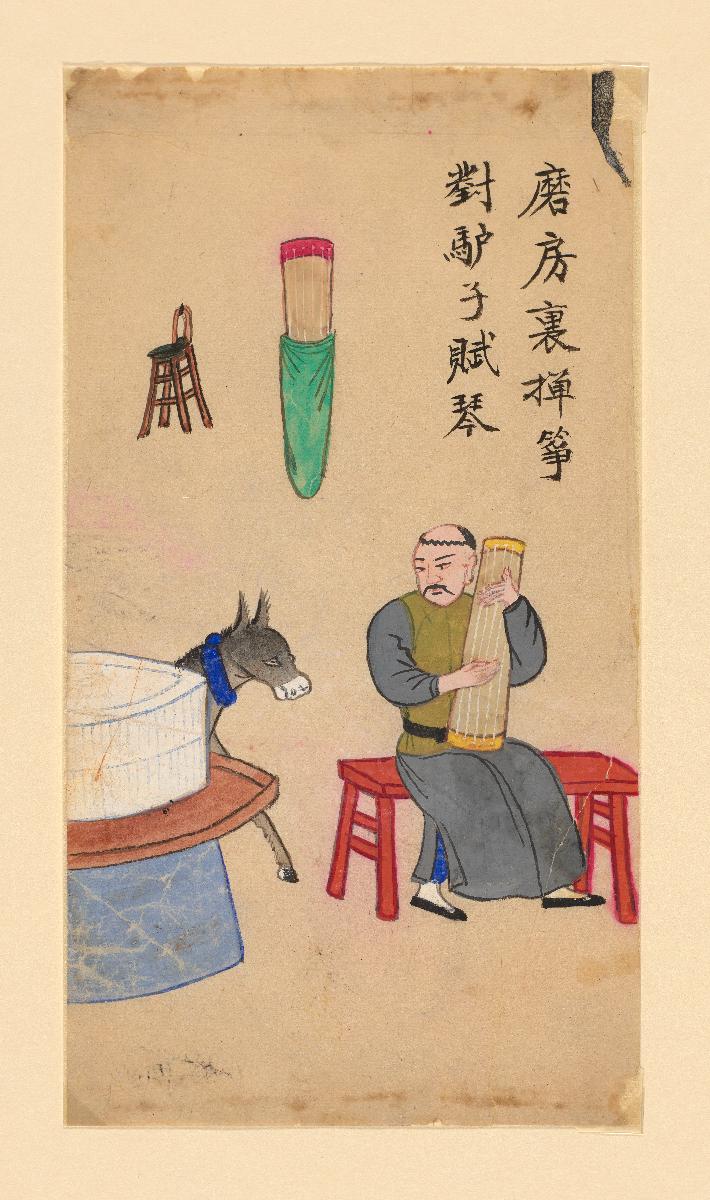 磨房裏撣箏
對馿子賦琴